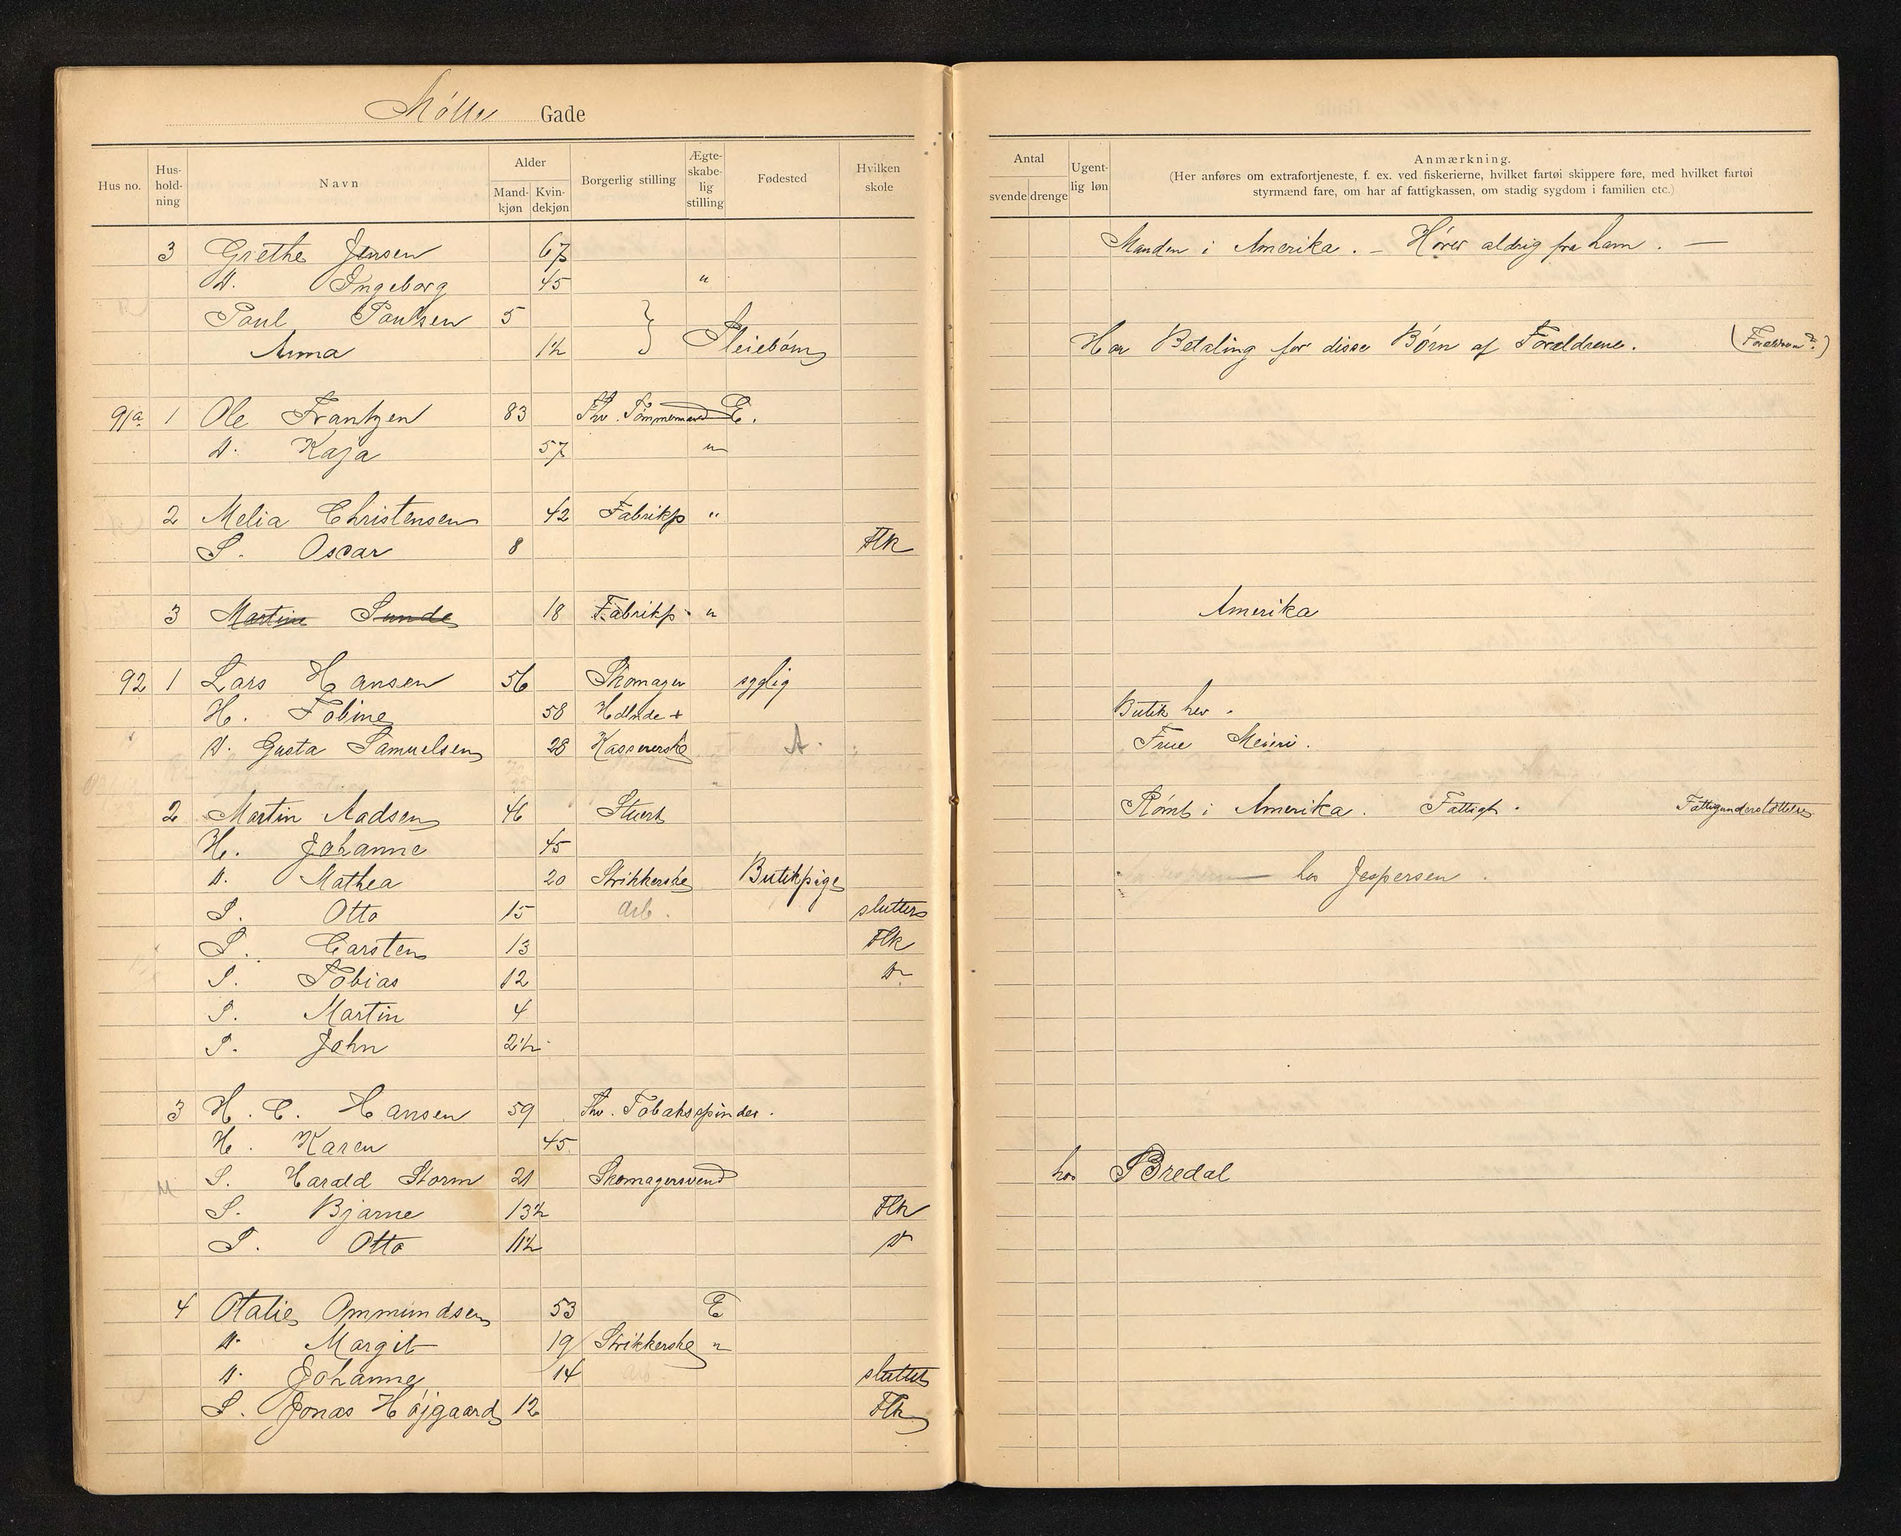 Mølle Gade
Hus no. Hus-hold-ning Navn Alder Mand-kjøn Kvin-dekjøn Borgerlig stilling Ægte-skabe-lig stilling Fødested Hvilken skole
Antal svende drenge Ugent-lig løn Anmærkning.
(Her anføres om extrafortjeneste, f. ex. ved fiskerierne, hvilket fartøi skippere føre, med hvilket fartøi
styrmænd fare, om har af fattigkassen, om stadig sygdom i familien etc.)
3 Grethe Jensen 67 Manden i Amerika. — Hører aldrig fra ham. —
D. Ingeborg 45 "
Paul Paulsen 5
Anna 1½ Pleiebørn Har Betaling for disse Børn af Forældrene. (Forældrene?)
91a 1 Ole Frantzen 83 Fhv. Tømmermand E.
D. Kaja 57 "
2 Melia Christensen 42 Fabrikp "
S. Oscar 8 Flk
3 Martine Sunde 18 Fabrikp. " Amerika
92 1 Lars Hansen 56 Skomager syglig
H. Tobine 58 Hdlnde + Butik her.
D. Gusta Samuelsen 28 Kassererske A. Frue Meieri.
2 Martin Aadsen 46 Stuert Rømt i Amerika. Fattigt. Fattigunderstøttelse
H. Johanne 45
D. Mathea 20 Strikkerske Butikpige hos Jespersen.
S. Otto 15 arb. slutter
S. Carsten 13 Flk
S. Tobias 12 D
S. Martin 4
S. John 2½
3 H. C. Hansen 59 Fhv. Tobakspinder.
H. Karen 45
M S. Harald Storm 21 Skomagersvend hos Bredal
S. Bjarne 13½ Flk
S. Otto 11½ D
4 Otalie Ommundsen 53 E
D. Margit 19 Strikkerske "
D. Johanne 14 arb sluttet
S. Jonas Højgaard 12 Flk